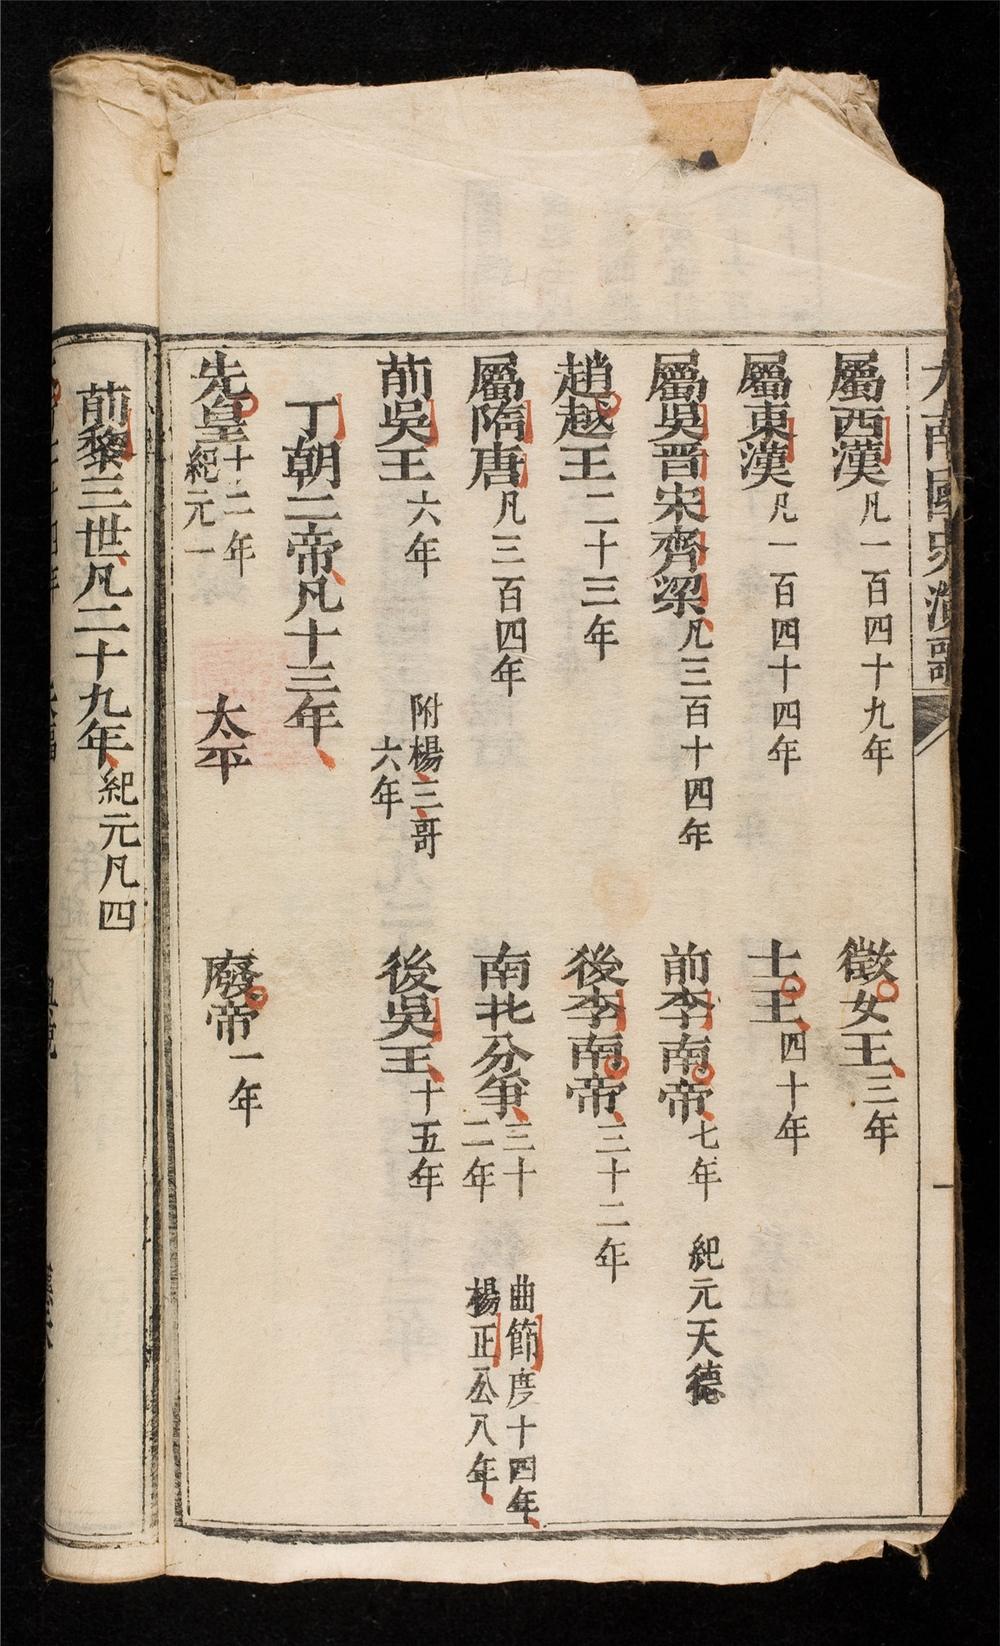 大南國史演歌
一
屬西漢凡一百四十九年
徵女王三年
屬東漢凡一百四十四年
士王四十年
屬吳晋宋齊梁凡三百十四年
前李南帝七年
紀元天德
趙越王二十三年
後李南帝三十二年
屬隋唐凡三百四年
南北分爭三十
二年
曲節度十四年
楊正公八年
前吳王六年
附楊三哥
六年
後吳王十五年
丁朝二帝凡十三年
先皇十二年
紀元一
太平
廢帝一年
前黎三世凡二十九年紀元凡四